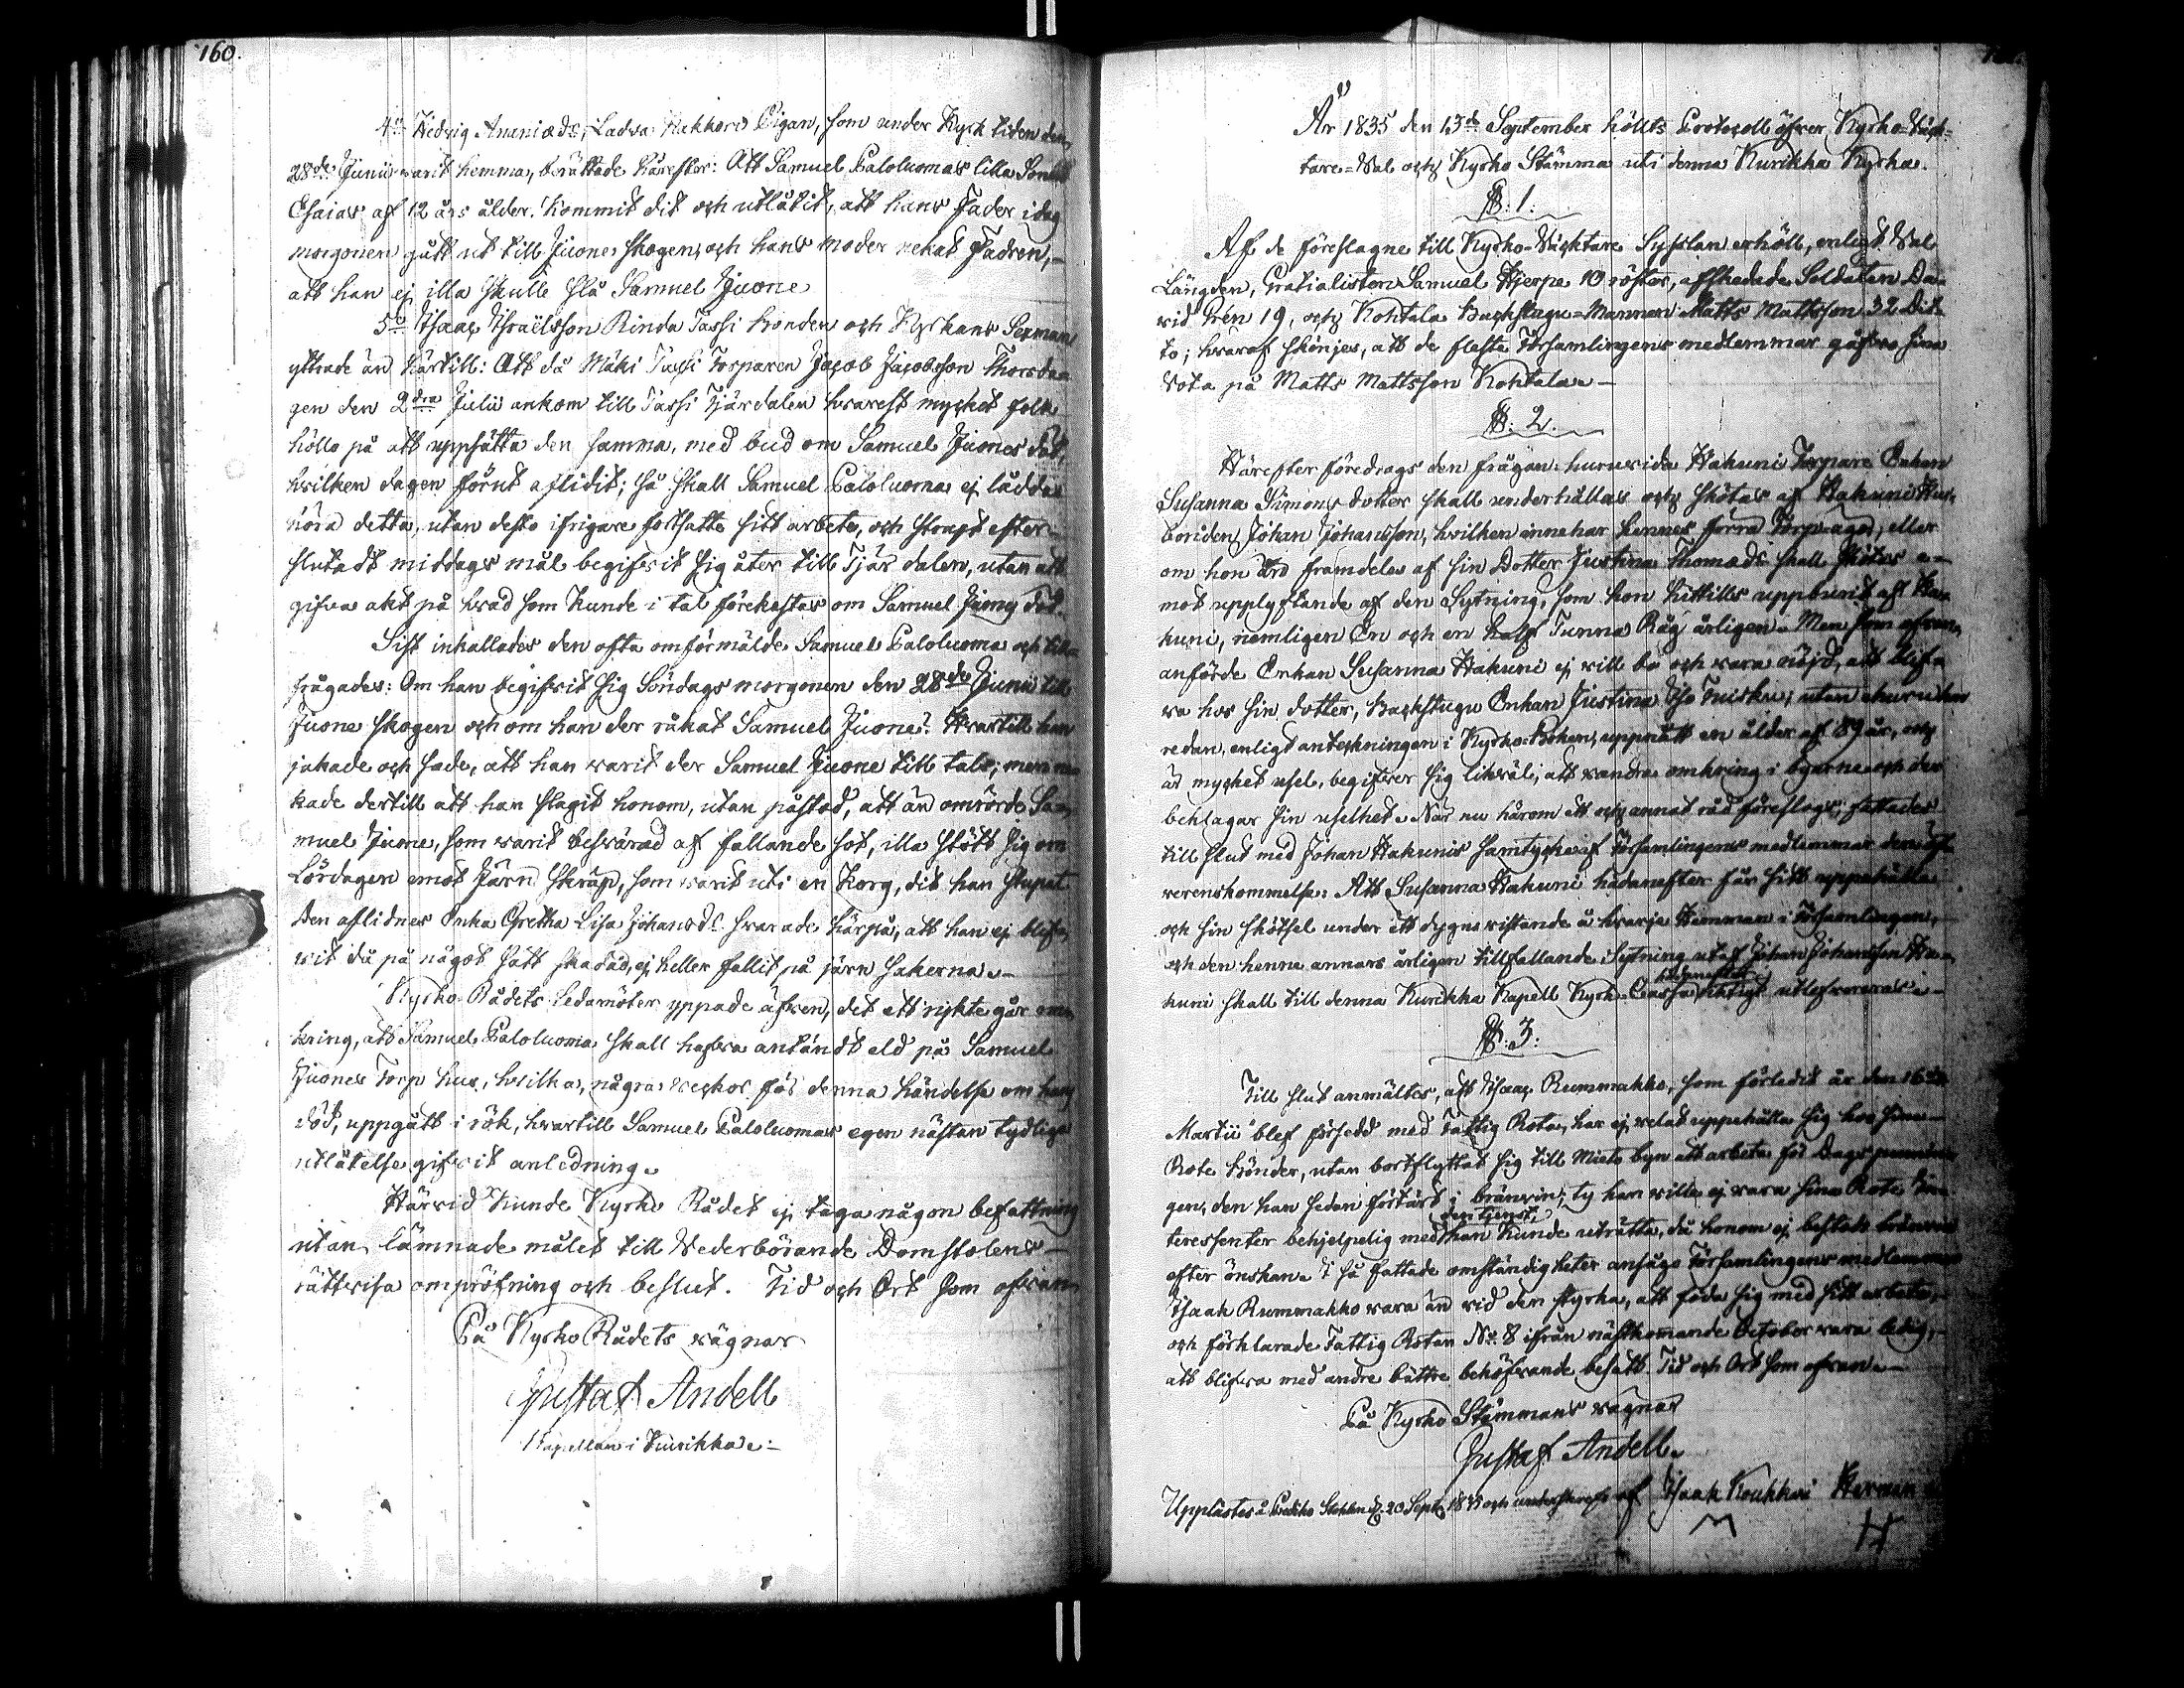 160.
4to Hedvig Ananiæ dr, Ladva Nekkoro Pigan, som under Kyrk tiden den
28de Junii varit hemma, berättade härefter: Att Samuel Paloluomas lilla Son
Esaias af 12 års ålder kommit dit och utlåtit, att hans Fader i dag
morgonen gått ut till Juone skogen, och hans moder nekat Fadren,
att han ej illa skulle slå Samuel Juone
5to Isaac Israëlsson Rinda Tassi bonden och Kyrkans Sexman
yttrade än härtill: Att då Mäki Tassi Torparen Jacob Jacobsson Thorsda-
gen den 2dra Julii ankom till Tassi Tjärdalen hvarest mycket folk
höllo på att uppsätta den samma, med bud om Samuel Juones död,
hvilken dagen förut aflidit; så skall Samuel Paloluoma ej låddas
höra detta, utan desto ifrigare fortsatte sitt arbete, och strapt efter
slutadt middags mål begifvit sig åter till Tjär dalen, utan att
gifva akt på hvad som kunde i tal förekastas om Samuel Juones död.
Sist inkallades den ofta omförmälde Samuel Paloluoma och till-
frågades: Om han begifvit sig Söndags morgonen den 28de Junii till
Juone skogen och om han der råkat Samuel Juone? Hvartill han
jakade och sade, att han varit der Samuel Juone till tals; men ne-
kade dertill att han slagit honom, utan påstod, att än omrörde Sa-
muel Juone, som varit besvärad af fallande sot, illa stött sig om
Lördagen emot Järn skräp, som varit uti en Korg, dit han stupat
Den aflidnes Enka Gretha Lisa Johans dr svarade härpå, att han ej blif-
vit då på något sätt skadad, ej heller fallit på järn sakerna.
Kyrko-Rådets Ledamöter yppade äfven, det ett rykte går om-
kring, att Samuel Paloluoma skall hafva antändt eld på Samuel
Juones Torp hus, hvilka, några veckor för denna händelse om hans
död, uppgått i rök, hvartill Samuel Paloluomas egen nästan tydliga
utlåtelse gifvit anledning.
Härvid kunde Kyrko Rådet ej taga någon befattning
utan lämnade målet till Vederbörande Domstolens
rättvisa ompröfning och beslut. Tid och Ort som ofvan
På Kyrko Rådets vägnar
Gustaf Andell
Kapellan i Kurikka.
År 1835 den 13de September hölts Protocoll öfver Kyrko-Väck-
tare-Val och Kyrko Stämma uti denna Kurikka Kyrka.
§: 1:
Af de föreslagne till Kyrko-Väcktare Sysslan erhöll, enligt Val
Längden, Gratialisten Samuel Hjerpe 10 röster, affskedade Soldaten Da-
vid Gren 19, och Kohtala Backstugu-Mannen Matts Mattsson 32 Dit-
to; hvaraf skönjes, att de flesta Församlingens medlemmar gåfvo sina
Vota på Matts Mattsson Kohtala.
§: 2.
Härefter föredrogs den frågan: huruvida Hakuni Torpare Enkan
Susanna Simons dotter skall underhållas och skötas af Hakuni
bonden Johan Johansson, hvilken innehar hennes förra Torp-ägor, eller
om hon än framdeles af sin Dotter Justina Thomæ dr skall skötas e-
mot upplyftande af den Sytning, som hon hittills uppburit af Ha-
kuni, nemligen En och en half Tunna Råg årligen. Men som ofvan
anförde Enkan Susanna Hakuni ej vill bo och vara nöjd, att blif-
va hos sin dotter, Backstugu Enkan Justina Iso Tuisku; utan ehuru hon
redan, enligt anteckningen i Kyrko-Boken, uppnått en ålder af 89 år, och
är mycket usel, begifver sig likväl, att vandra omkring i byarne och der
beklagar sin uselhet. När nu härom ett och annat råd föreslogs, fattades
till slut med Johan Hakunis samtycke af Församlingens medlemmar den öf-
verenskommelse: Att Susanna Hakuni hädanefter får sitt uppehälle
och sin skötsel under ett dygns vistande å hvarje Hemman i Församlingen,
och den henne annars årligen tillfallande Sytning utaf Johan Johansson Ha-
hädanefter
kuni skall till denna Kurikka Kapell Kyrk-Cassa riktigt utlefvereras.
§: 3:
Till slut anmältes, att Isaac Rummakko, som förledit år den 16de
Martii blef försedd med Fattig Rota, har ej velat uppehålla sig hos sina
Rote bönder, utan bortflyttat sig till Mieto byn att arbeta för Dagspennin-
gen, den han sedan förtärt i bränvin; ty han ville ej vara sina Rote In-
den tjenst,
teressenter behjelpelig med han kunde uträtta, då honom ej bestods bränvin
efter önskan. I så fattade omständigheter ansågo Församlingens medlemmar
Isaak Rummakko vara än vid den styrka, att föda sig med sitt arbete,
och förklarade Fattig Rotan No: 8 ifrån nästkommande October vara ledig,
att blifva med andre bättre behöfvande besatt. Tid och Ort som ofvan.
På Kyrko Stämmans vägnar
Gustaf Andell.
Upplästes å Prediko Stolen d. 20 Sept. 1835 och underskrefs af Isaak Koukkari Herman
H